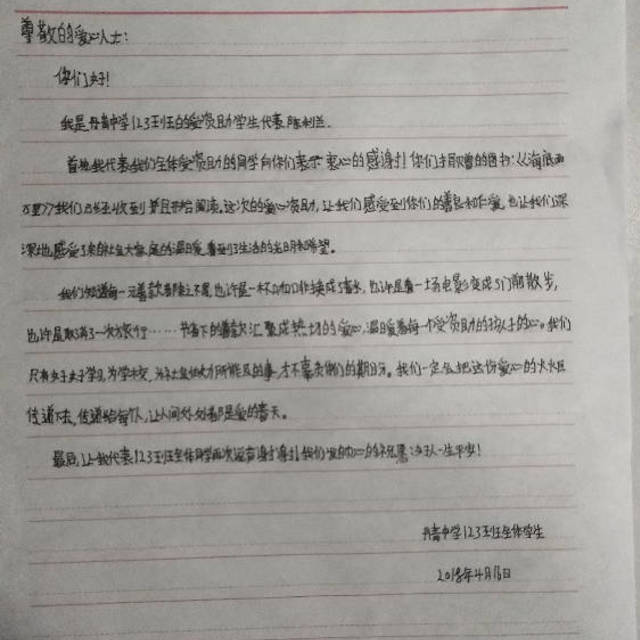 尊敬的爱心人士:
你们好!
我是丹青中学123班班的受资助学生代表陈利兰.
首先我代表我们全体受资助的同学向你们表示衷心的感谢!你们捐赠的图书:《海底两
万里》我们已经收到并且开始阅读。这次的爱心资助,让我们感受到你们的善良和仁爱,也让我们深
深地感受了来自社会大家庭的温暖,看到了生活的光明和希望。
我们知道每一元善款都来之不易,也许是一杯咖啡换成了清水,也许是看一场电影变成了门前散步,
也许是取消了一次旅行……节省下的善款汇聚成热切的爱心,温暖着每一个受资助的孩子的心。我们
只有好好学习,为学校,为社会做力所能及的事,才不辜负你们的期盼。我们一定会把这份爱心的火炬
传递下去,传递给每个人,让人间处处都是爱的春天。
最后,让我代表123班班全体同学再次说声谢谢!我们发自内心的祝愿:好人一生平安!
丹青中学123班班全体学生
2018年4月16日